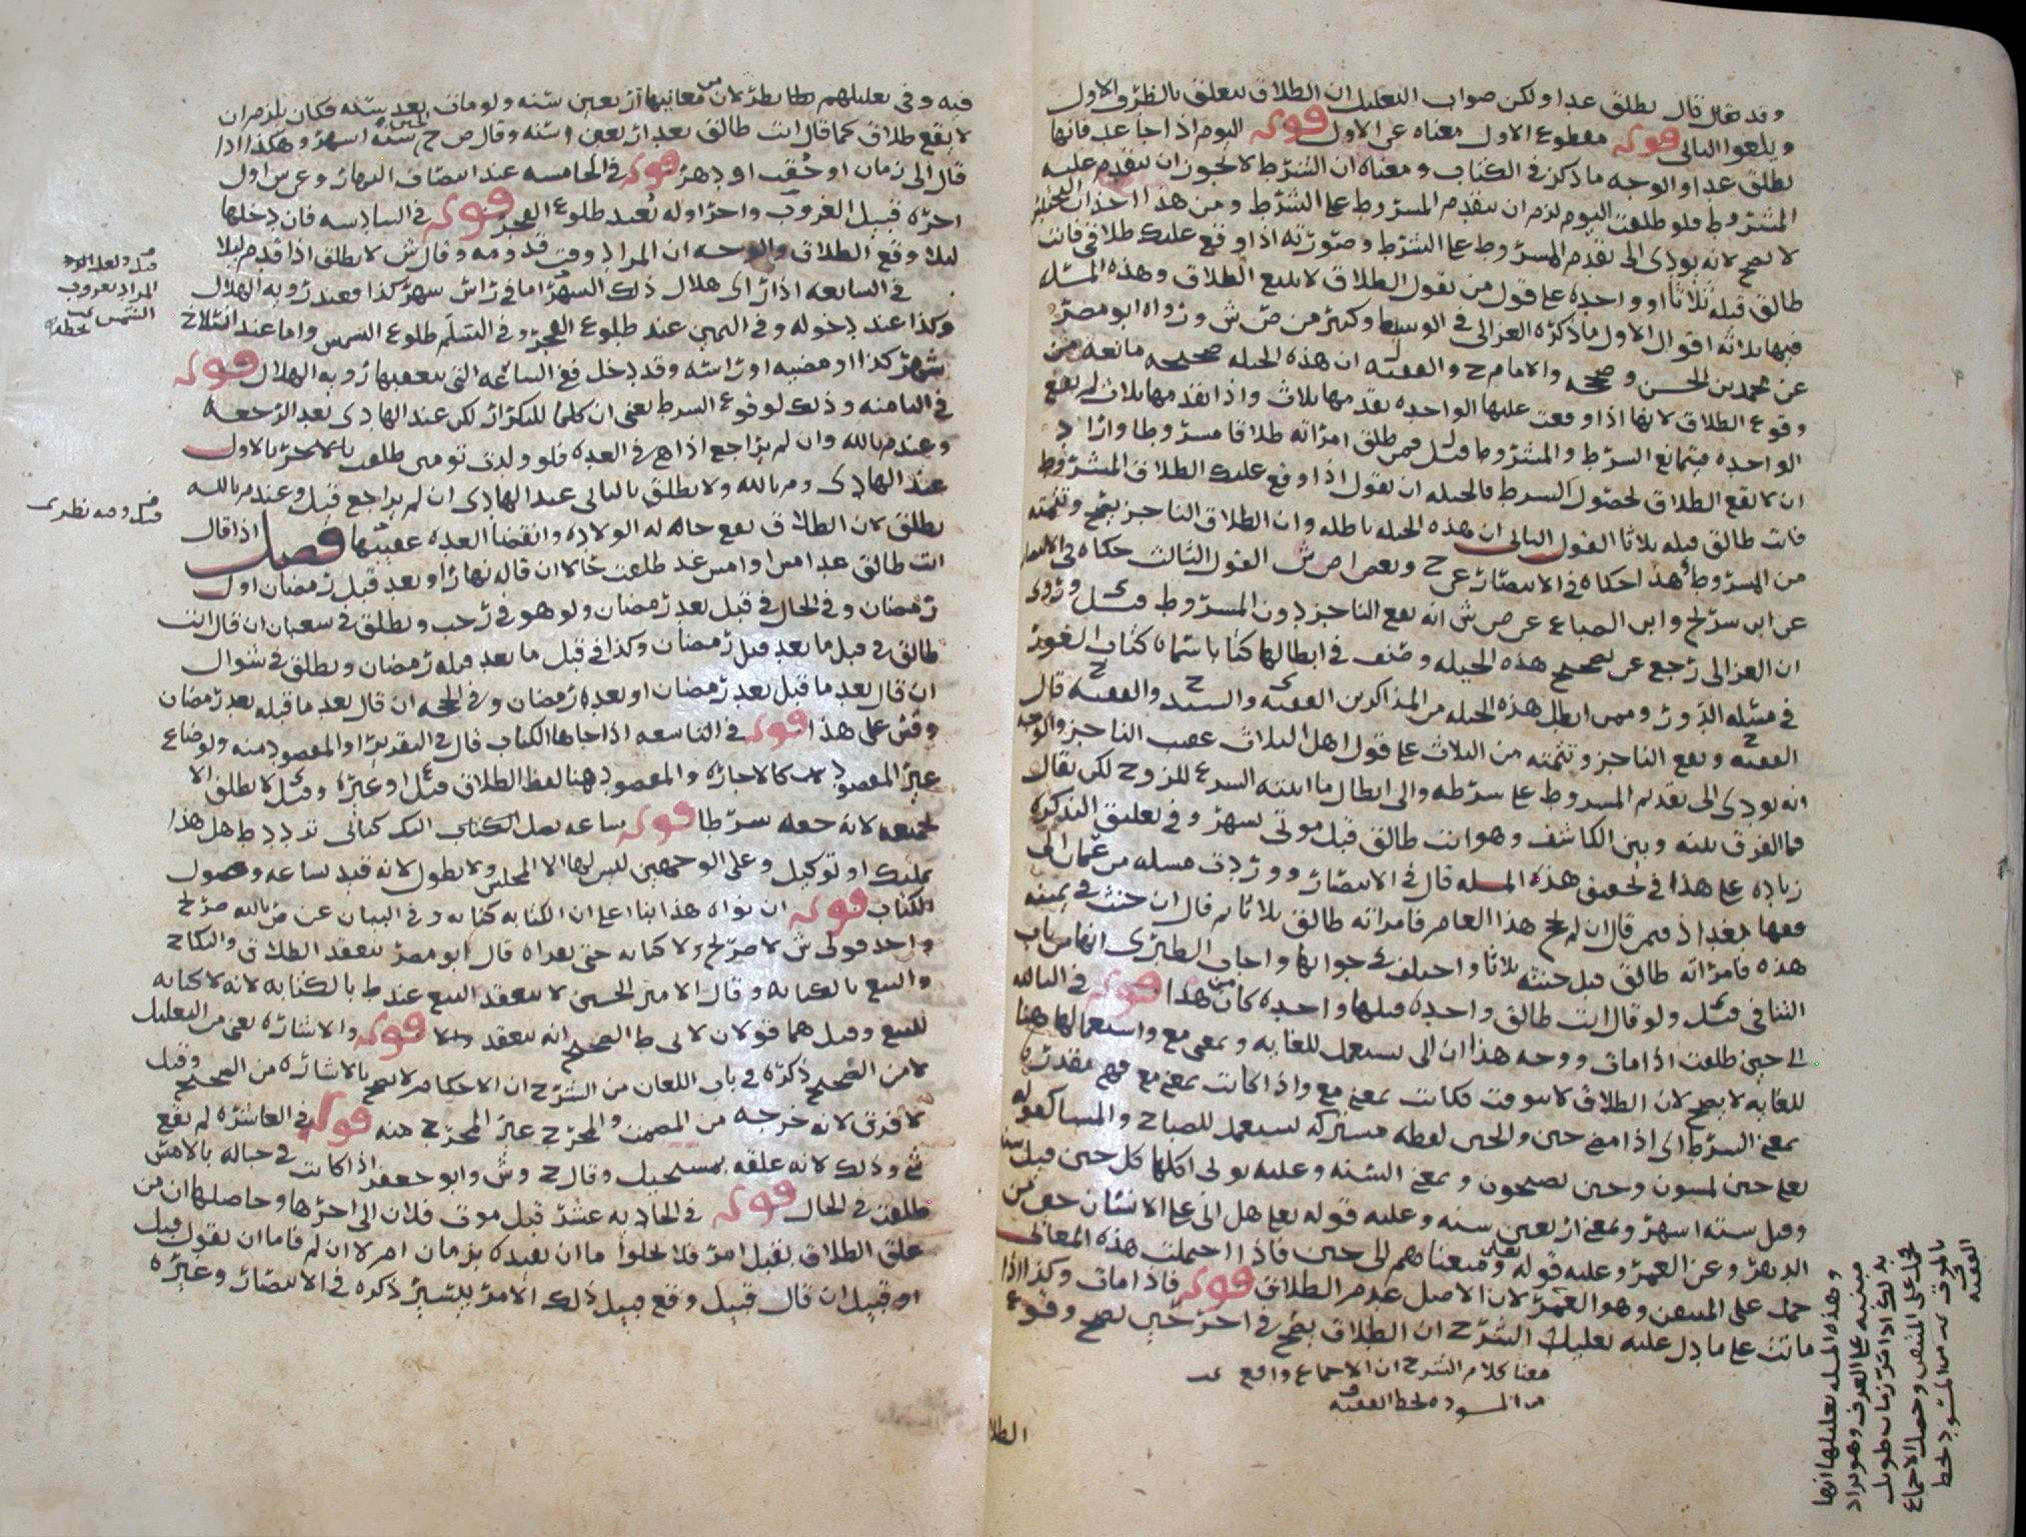 وقد يقال قال يطلق غدا ولكن صواب التعليل ان الطلاق يتعلق بالظرف الاول
ويلغوا الثاني قوله مقطوع الاول معناه عن الاول قوله اليوم اذا جا غد فانها
تطلق غدا والوجه ما ذكر في الكتاب ومعناه ان الشرط لا يجوز ان يتقدم عليه
المشروط فلو طلقت اليوم لزم ان يتقدم المشروط على الشرط ومن هذا اخذ ان التحبيس
لا يصح لانه يودي الى تقدم المشروط على الشرط وصورته اذا وقع عليك طلاقي فانت
طالق قبله ثلاثا او واحده على قول من يقول الطلاق لا يتبع الطلاق وهذه المسله
فيها ثلاثه اقوال الاول ما ذكره الغزالي في الوسيط وكثير من ص ش ورواه ابو مضر
عن محمد بن الحسن وصححه والامام ح والفقيه ل ان هذه الحيله صحيحه مانعه من
وقوع الطلاق لانها اذا وقعت عليها الواحده تقدمها ثلاث واذا تقدمها ثلاث لم تقع
الواحده فيتمانع الشرط والمشروط ما قيل فيمن طلق امراته طلاقا مشروطا واراد
ان لا يقع الطلاق لحصول الشرط فالحيله ان يقول اذا وقع عليك الطلاق المشروط
فانت طالق قبله ثلاثا القول الثاني ان هذه الحيله باطله وان الطلاق الناجز يقع وتتمته
من المشروط هذا حكاه في الانتصار عن ح وبعض اص ش القول الثالث حكاه في الانتصار
عن ابن سريج وابن الصباغ عن ص ش انه يقع الناجز دون المشروط قيل وروي
ان الغزالي رجع عن تصحيح هذه الحيله وصنف في ابطالها كتابا سماه كتاب الغور
في مسله الدور وممن ابطل هذه الحيله من المذاكرين الفقيه ي والسيد ح والفقيه ح قال
الفقيه ح ويقع الناجز وتتمته من الثلاث على قول اهل الثلاث عقيب الناجز والوجه
انه يودي الى تقديم المشروط على شرطه والى ابطال ما اثبته الشرع للزوج لكن يقال
فما الفرق بينه وبين الكاشف وهو انت طالق قبل موتي بشهر وفي تعليق التذكره
زياده على هذا في تحقيق هذه المسله قال في الانتصار ووردت مسله من عمان الى
فقها بغداذ فيمن قال ان لم يحج هذا العام فامراته طالق ثلاثا ثم قال ان حنث في يمينه
هذه فامراته طالق قبل حنثه ثلاثا واختلف في جوابها واجاب الطبري انها من باب
التنافي قيل ولو قال انت طالق واحده قبلها واحده كان من هذا قوله في الثالثه
الى حين طلقت اذا مات ووجه هذا ان الى تستعمل للغايه وبمعنى مع واستعمالها هنا
للغايه لا يصح لان الطلاق لا يتوقت فكانت بمعنى مع واذا كانت بمعنى مع فهي مقدره
بمعنى الشرط اي اذا مضى حين والحين لفظه مشتركه تستعمل للصباح والمسا كقوله
تعالى حين تمسون وحين تصبحون وبمعنى السنه وعليه توتي اكلها كل حين قيل سنه
وقيل سته اشهر وبمعنى اربعين سنه وعليه قوله تعالى هل اتى على الانسان حين من
الدهر وعن العمر وعليه قوله تعالى ومتعناهم الى حين فاذا احتملت هذه المعاني
حمل على المتيقن وهو العمر لان الاصل عدم الطلاق قوله فاذا مات وكذا اذا
ماتت على ما دل عليه تعليل الشرح ان الطلاق يقع في اخر حين يصح وقوع
معنا كلام الشرح ان الاجماع واقع
من المسوده بخط الفقيه ف
الطلا
وهذه المسله تعليلها انها
مبنيه على العرف وهو يراد
بذلك اذا مر زمان طويل
حمل على المتيقن وحصل الاجماع
بالموت من المسود بخط
الفقيه ف
فيه وفي تعليلهم نظر لان من معانيها اربعين سنه ولو مات بعد سنه فكان يلزم ان
لا يقع طلاق كما قال انت طالق بعد اربعين سنه وقال ص ح سته اشهر وهكذا اذا
قال الى زمان او حقب او دهر قوله في الخامسه عند انتصاف النهار وعرس اول
اخره قبيل الغروب واخر اوله بعيد طلوع الفجر قوله في السادسه فان دخلها
ليلا وقع الطلاق والوجه ان المراد وقت قدومه وقال ش لا يطلق اذا قدم ليلا
في السابعه اذا راى هلال ذلك الشهر اما في راس شهر كذا فعند رويه الهلال
وكذا عند دخوله وفي اليمين عند طلوع الفجر وفي السلم طلوع الشمس واما عند انسلاخ
شهر كذا او مضيه او راسه وقد دخل فمع الساعه التي تعقبها رويه الهلال قوله
في الثامنه وذلك لوقوع الشرط يعني ان كلما للتكرار لكن عند الهادي بعد الرجعه
وعند م بالله وان لم يراجع اذا هي في العده فلو ولدت تومين طلقت بالاخر بالاول
عند الهادي وم بالله ولا يطلق بالثاني عند الهادي ان لم يراجع قيل وعند م بالله
يطلق لان الطلاق يقع حاله الولاده وانقضا العده عقيبها فصل اذا قال
انت طالق غدا امس او امس غد طلقت حالا ان قاله نهارا وبعد قبل رمضان اول
رمضان وفي الحال في قبل بعد رمضان ولو هو في رجب وتطلق في شعبان ان قال انت
طالق في قبل ما بعد قبل رمضان وكذا في قبل ما بعد قبله رمضان وتطلق في شوال
ان قال بعد ما قبل بعد رمضان او بعده رمضان وفي الحجه ان قال بعد ما قبله بعد رمضان
وقس على هذا قوله في التاسعه اذا جاها الكتاب قال في التقرير او المقصود منه ولو ضاع
غير المقصود كالاجازه والمقصود هنا لفظ الطلاق قيل ع او غيره وقيل ي لا تطلق الا
بجميعه لانه جعله شرطا قوله ساعه يصل الكتاب اليك كتابي تردد ط هل هذا
تمليك او توكيل وعلى الوجهين ليس لها الا المجلس ولا يطول لانه قيد بساعه وصول
الكتاب قوله ان نواه هذا بنا على ان الكتابه كنايه وفي البيان عن م بالله صريح
واحد قولي ش لا صريح ولا كنايه حتى يقراه قال ابو مضر ينعقد الطلاق والنكاح
والبيع بالكتابه وقال الامير الحسين لا ينعقد البيع عند ط بالكتابه لانه لا كنايه
للبيع وقيل هما قولان لابي ط الصحيح انه ينعقد قوله والاشاره يعني من العليل
لا من الصحيح ذكره في باب اللعان من الشرح ان الاحكام لا تصح بالاشاره من الصحيح وقيل
لا فرق لانه خرجه من المصمت والمخرج غير المخرج منه قوله في العاشره لم يقع
شي وذلك لانه علقه بمستحيل وقال ح وش وابو جعفر اذا كانت في حباله بالامس
طلقت في الحال قوله في الحاديه عشر قبل موت فلان الى اخرها وحاصلها ان من
علق الطلاق بقبل امر فلا يخلوا اما ان يقيده بزمان ام لا ان لم فاما ان يقول قبل
او قبيل ان قال قبيل وقع قبيل ذلك الامر بيسير ذكره في الانتصار وغيره
قيل ولعل
المراد بغروب
الشمس
بخطه
قيل وفيه نظر